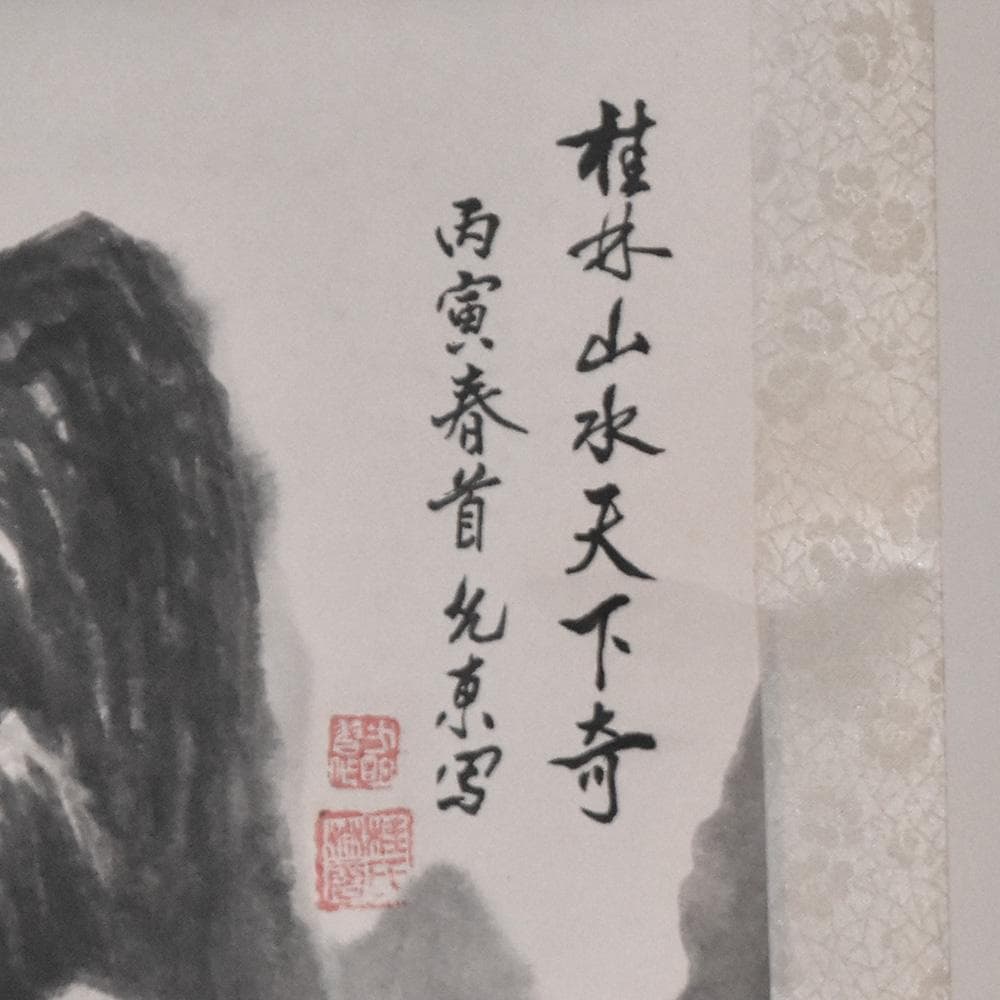 桂林山水天下奇
丙寅春首允東写